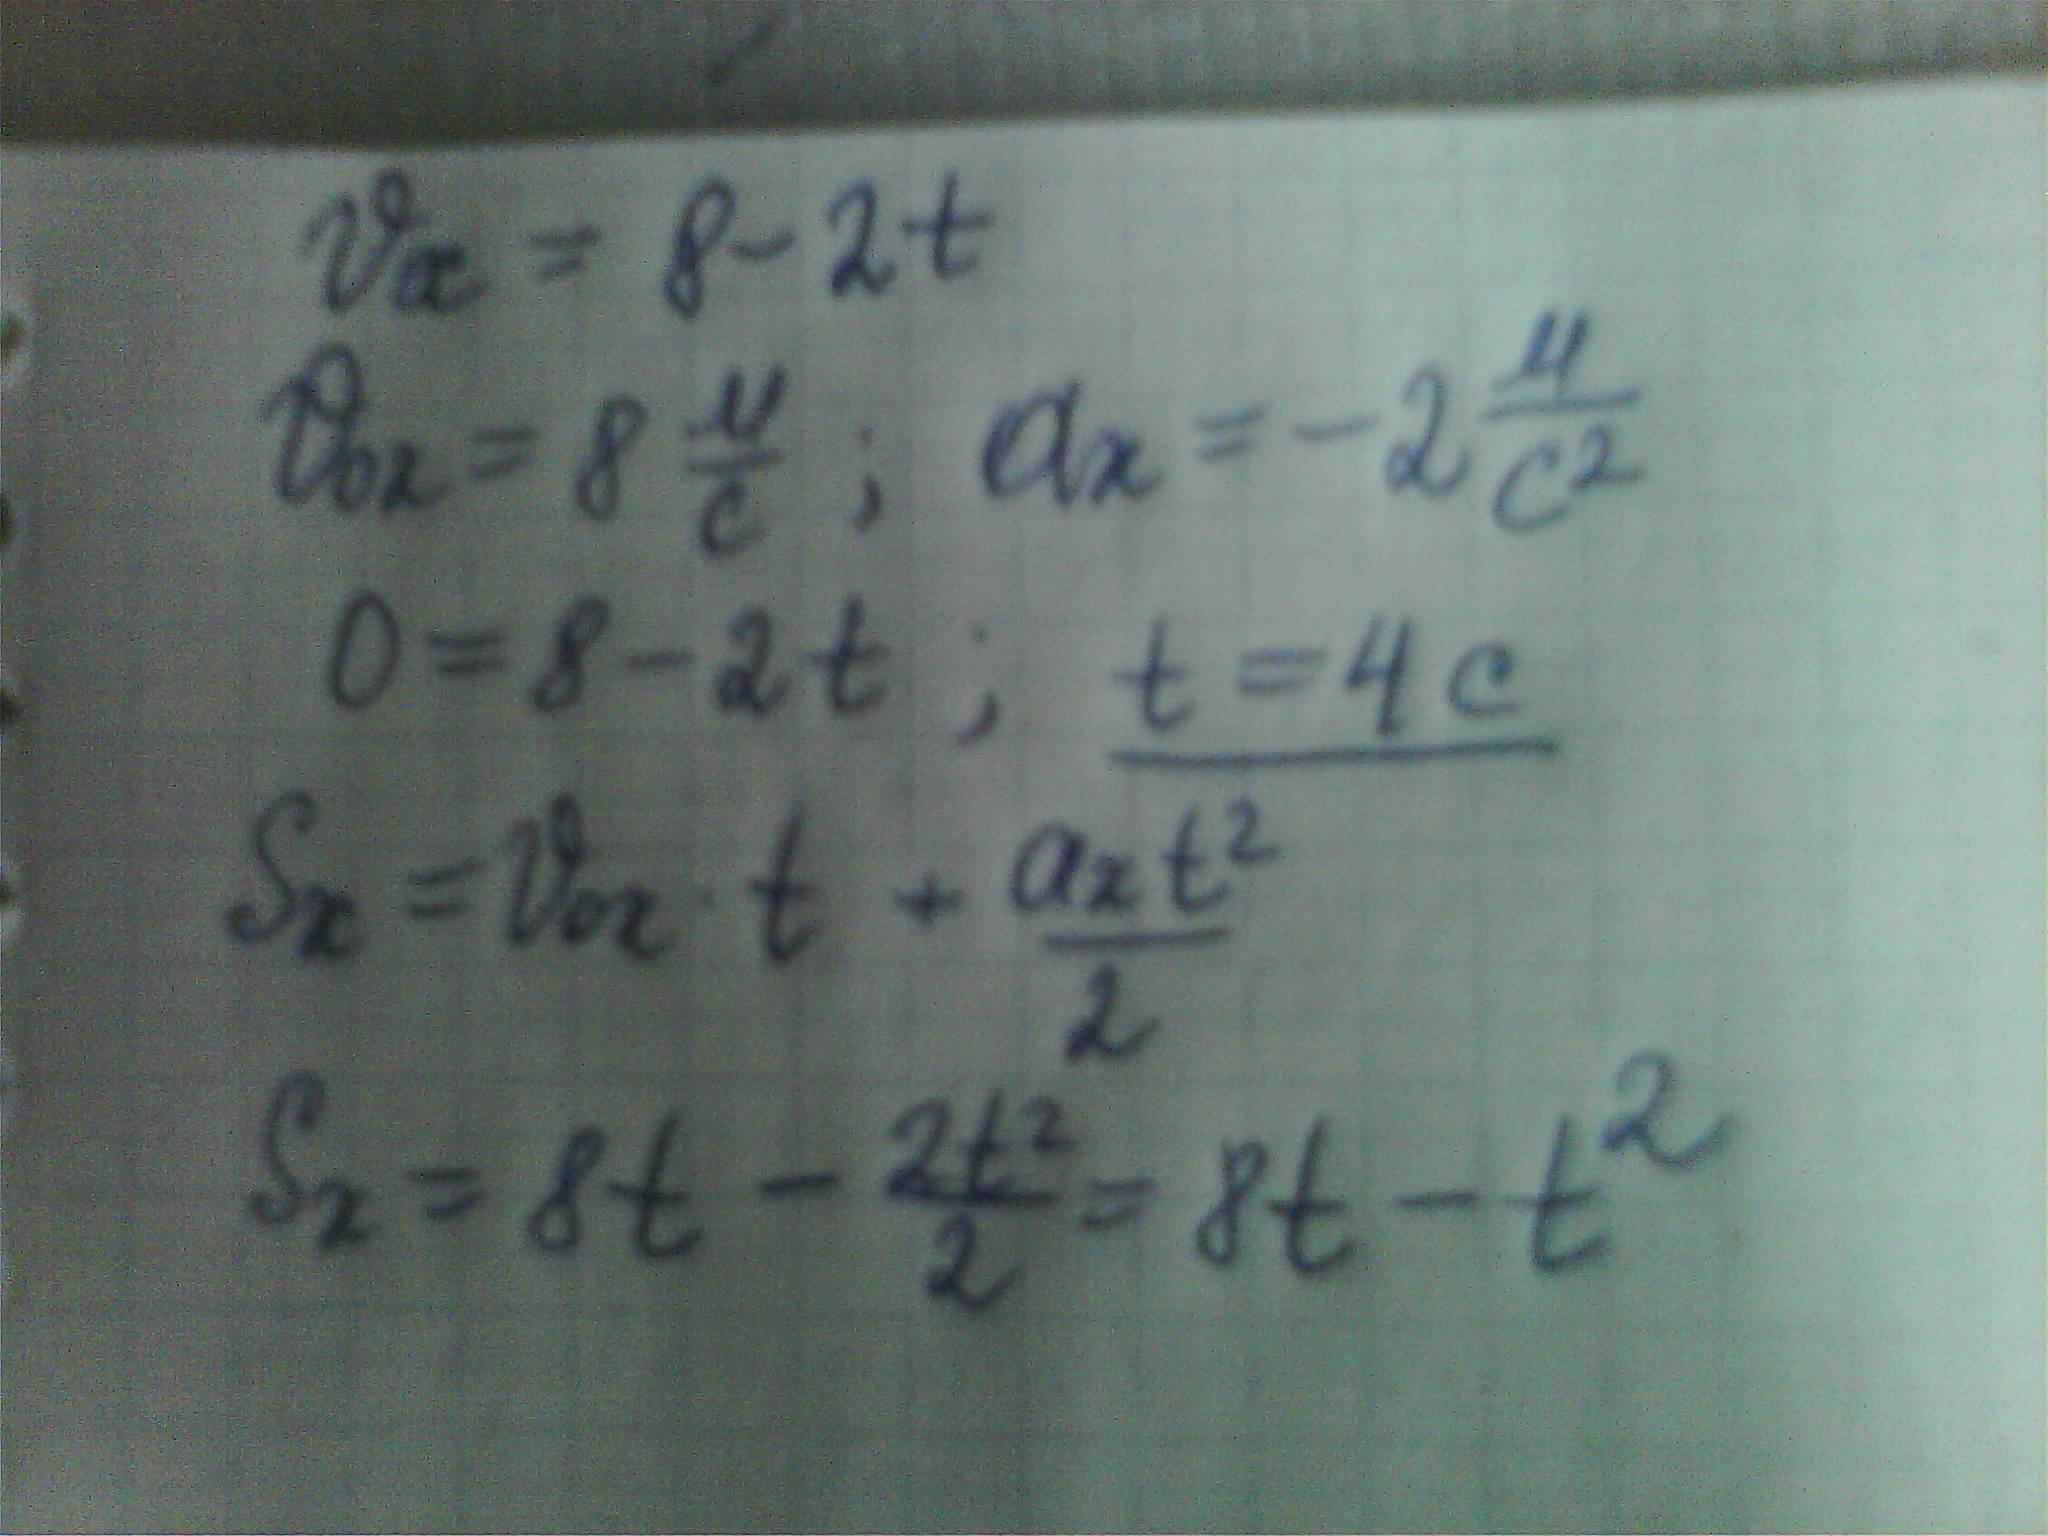 υₓ = 8 - 2t
υ₀ₓ = 8 м/с ; aₓ = -2 м/с²
0 = 8 - 2t ; t = 4 с
Sₓ = υ₀ₓ · t + aₓt²/2
Sₓ = 8t - 2t²/2 = 8t - t²